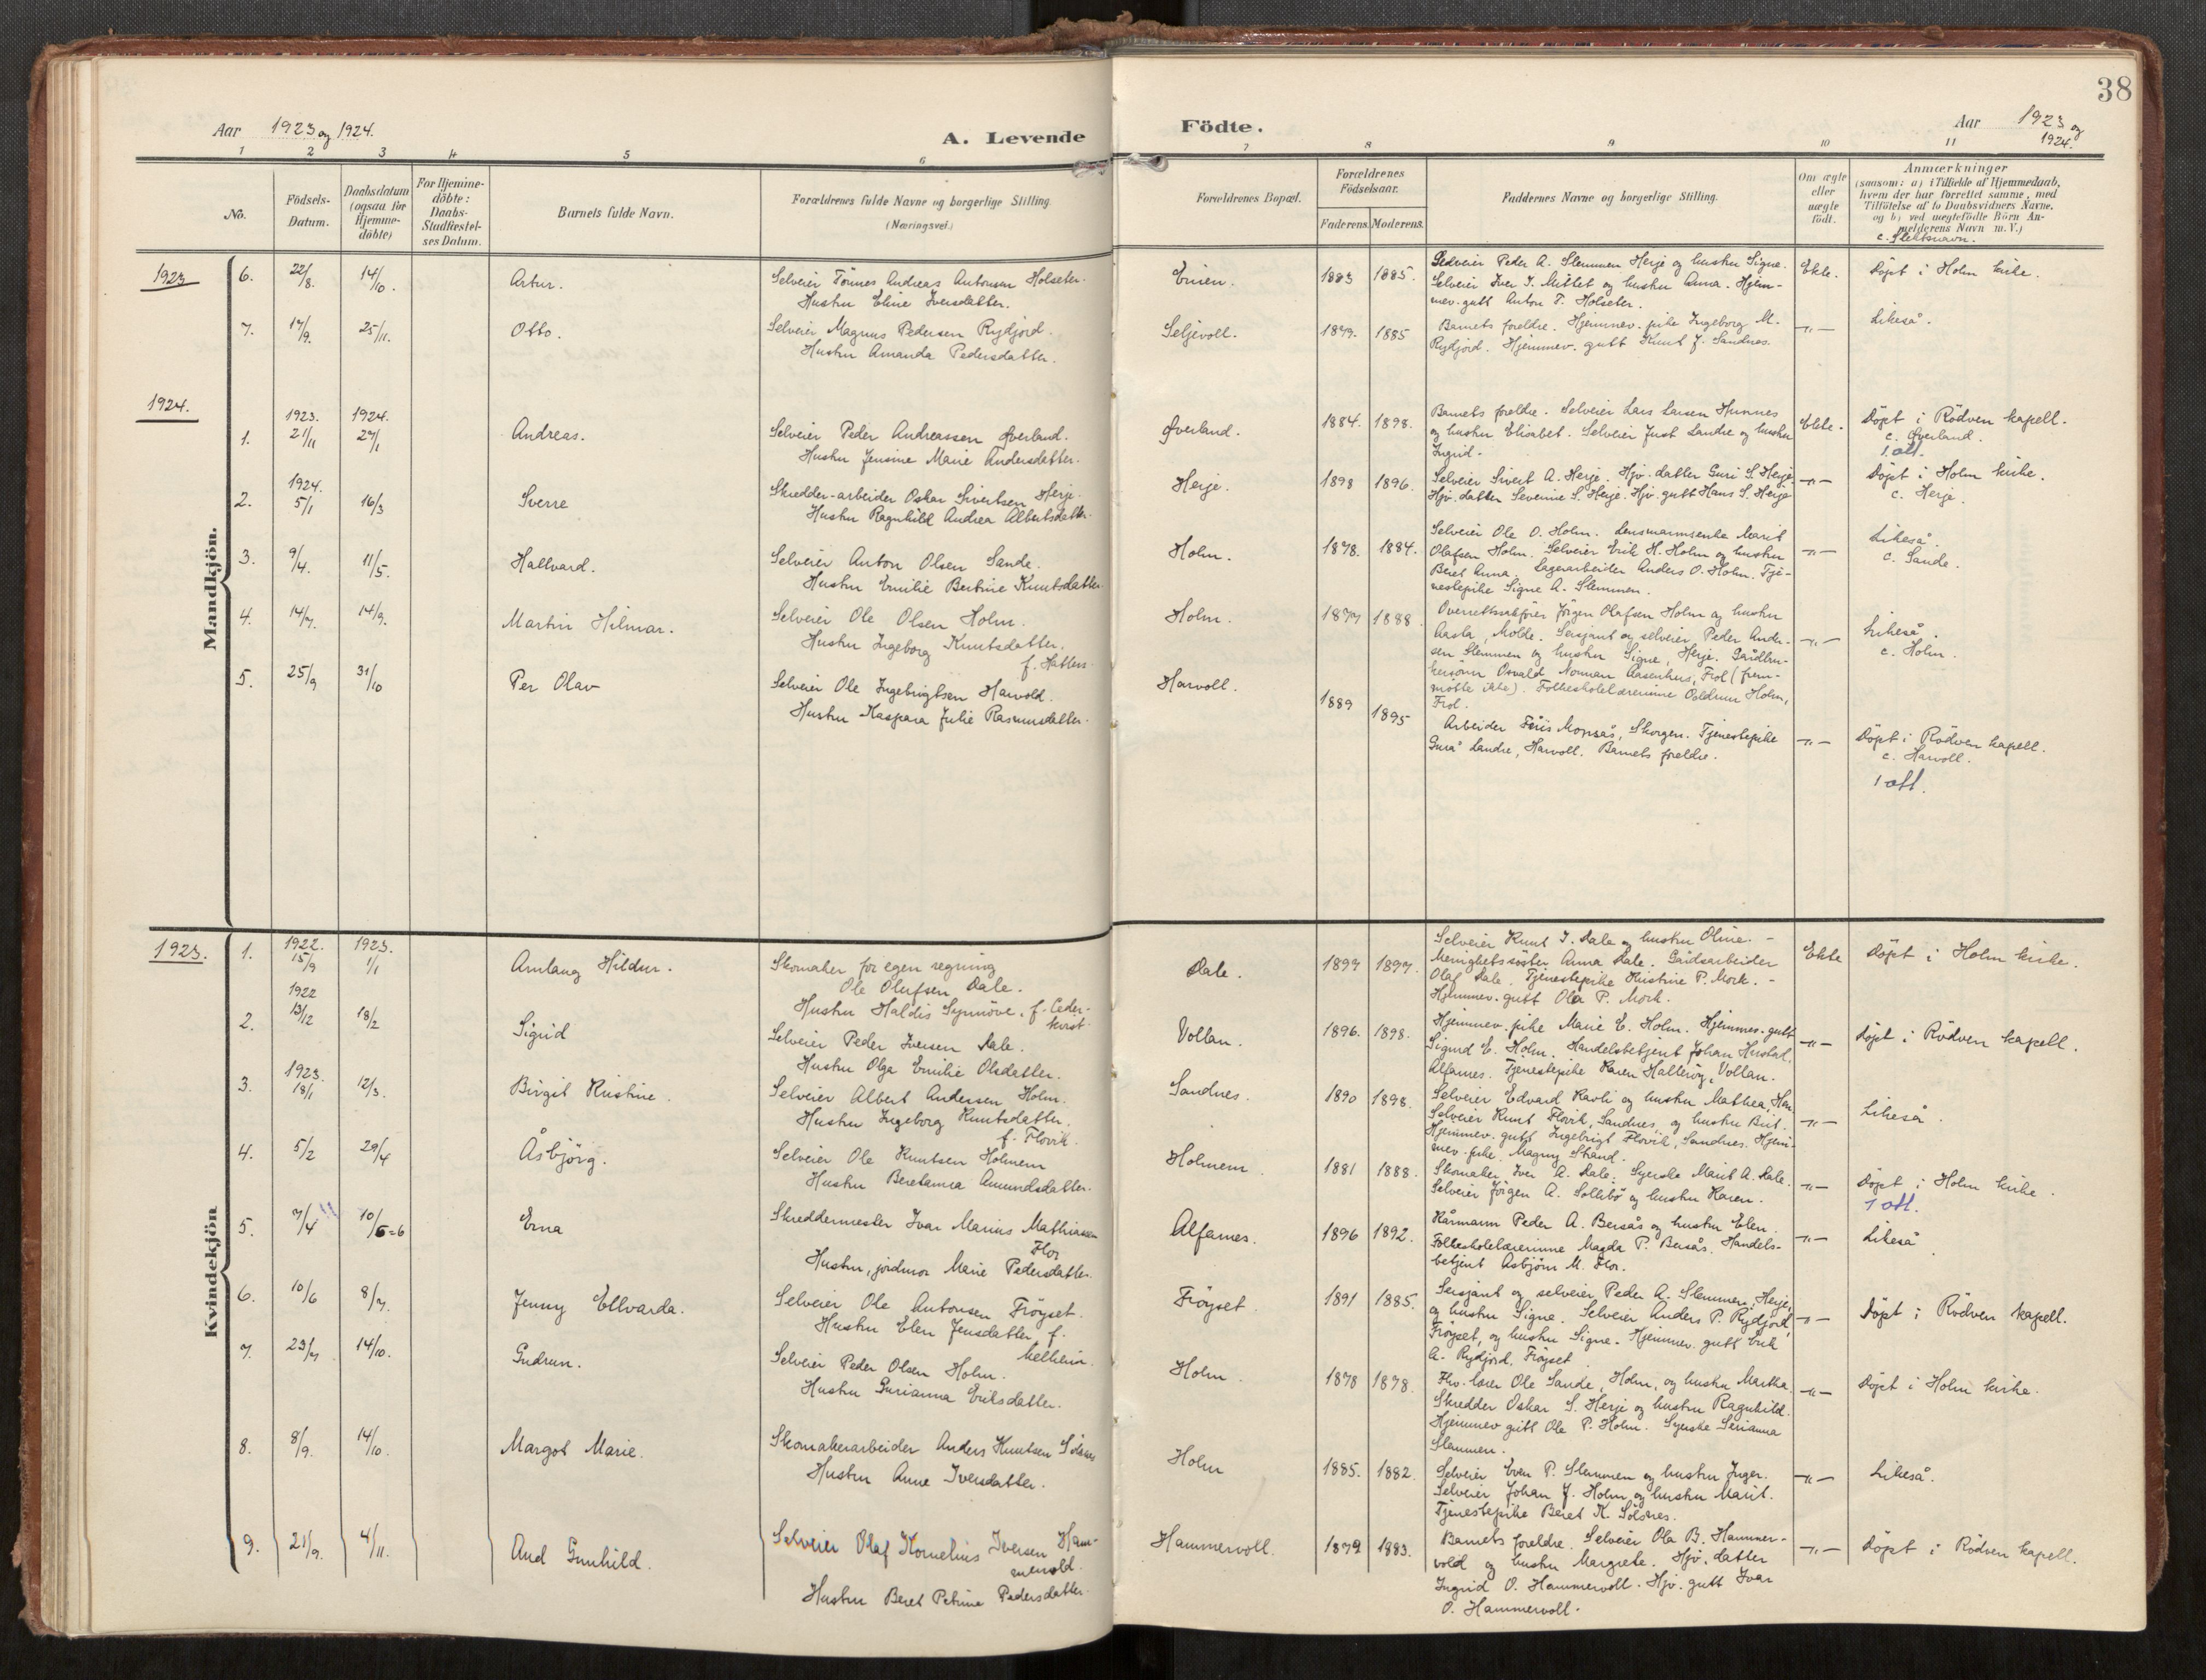 38
Aar 1923 og 1924.
A. Levende Födte.
Aar 1923 og 1924.
1 2 3 4 5 6 7 8 9 10 11
No.
Födsels-Datum.
Daabsdatum (ogsaa for Hjemme-döbte)
For Hjemme-döbte: Daabs-Stadfæstel-ses Datum.
Barnets fulde Navn.
Forældrenes fulde Navne og borgerlige Stilling.
(Næringsvei.)
Forældrenes Bopæl.
Forældrenes Födselsaar.
Faderens. Moderens.
Faddernes Navne og borgerlige Stilling.
Om ægte eller uægte födt.
Anmærkninger
(saasom: a) i Tilfælde af Hjemmedaab,
hvem der har forrettet samme, med
Tilföielse af to Daabsvidners Navne.
og b) ved uægtefödte Börn An-
melderens Navn m.V.)
c. Slektsnavn.
Mandkjön.
1923
6. 22/8. 14/10. Artur.
Selveier Tönnes Andreas Antonsen Holseter.
Hustru Eline Iversdatter.
1883 1885.
Selveier Peder A. Slemmen Herje og hustru Signe.
Selveier Iver I. Mittet og hustru Anna. Hjem-
mev. gutt Anton T. Holseter.
Ekte. Döpt i Holm kirke.
7. 17/9. 25/11. Otto.
Selveier Magnus Pedersen Rydjord.
Hustru Amanda Pedersdatter.
Seljevoll. 1879. 1885
Barnets foreldre. Hjemmev. pike Ingeborg M.
Rydjord. Hjemmev. gutt Knut J. Sandnes.
-"- Likeså.
1924.
1. 1923. 21/11 1924. 27/1 Andreas.
Selveier Peder Andreassen Överland.
Hustru Jensine Marie Andersdatter.
Överland. 1884. 1898.
Barnets foreldre. Selveier Lars Larsen Hunnes
og hustru Elisabet. Selveier Just Landre og hustru
Ingrid.
Ekte. Döpt i Rödven kapell.
c. Överland.
1 att.
2. 1924. 5/1 16/3 Sverre
Skredder-arbeider Oskar Sivertsen Herje.
Hustru Ragnhild Andrea Albertsdatter.
Herje. 1898 1896.
Selveier Sivert A. Herje. Hjv. datter Guri S. Herje.
Hjv. datter Severine S. Herje. Hjv. gutt Hans S. Herje
-"- Döpt i Holm kirke.
c. Herje.
3. 9/4. 11/5. Hallvard.
Selveier Anton Olsen Sande.
Hustru Emilie Bertine Knutsdatter.
Holm. 1878. 1884.
Selveier Ole O. Holm. Lensmannsenke Marit
Olafsen Holm. Selveier Erik H. Holm og hustru
Beret Anna. Lagerarbeider Anders O. Holm. Tje-
nestepike Signe A. Slemmen.
-"- Likeså.
c. Sande.
4. 14/7. 14/9. Martin Hilmar.
Selveier Ole Olsen Holm.
Hustru Ingeborg Knutsdatter,
f. Hatlen.
Holm. 1877 1888.
Overrettssakförer Jörgen Olafsen Holm og hustru
Aasta, Molde. Sersjant og selveier Peder Ander-
sen Slemmen og hustru Signe, Herje. Gårdbru-
kersönn Osvald Norman Aasenhus, Frol (frem-
motte ikke). Folkeskolelærerinne Oddrun Holm,
Frol.
-"- Likeså.
c. Holm.
5. 25/9 31/10 Per Olav
Selveier Ole Ingebrigtsen Harvold.
Hustru Kaspara Julie Rasmusdatter.
Harvoll. 1889 1895
Arbeider Monsås, Skorgen. Tjenestepike
Landre, Harvoll. Barnets foreldre.
-"- Döpt i Rödven kapell.
c. Harvoll.
1 att.
Kvindekjön
1923.
1. 1922. 15/9 1923. 1/1 Amlaug Hildur.
Skomaker for egen regning
Ole Olufsen Dale.
Hustru Haldis Synnöve, f. Ceder-
kvist.
Dale. 1899 1897.
Selveier Knut I. Dale og hustru Oline. -
Menighetssöster Anna Dale. Gårdsarbeider
Olaf Dale. Tjenestepike Kristine P. Mork. -
Hjemmev. gutt Ola P. Mork.
Ekte Döpt i Holm kirke.
2. 1922 13/12 18/2 Sigrid
Selveier Peder Iversen Dale.
Hustru Olga Emilie Olsdatter.
Vollan. 1896. 1898.
Hjemmev. pike Marie E. Holm. Hjemmev. gutt
Sigurd E. Holm. Handelsbetjent Johan Hustad,
Alfarnes. Tjenestepike Karen Halleröy, Vollan.
-"- Döpt i Rödven kapell.
3. 1923. 18/1 12/3. Birgit Kristine.
Selveier Albert Andersen Holm.
Hustru Ingeborg Knutsdatter,
f. Flovik.
Sandnes. 1890 1898.
Selveier Edvard Ravli og hustru Mathea,
Selveier Knut Flovik, Sandnes, og hustru Brit.
Hjemmev. gutt Ingebrigt Flovik, Sandnes. Hjem-
mev. pike Magny Strand.
-"- Likeså.
4. 5/2 29/4 Åsbjörg.
Selveier Ole Knutsen Holmem
Hustru Beretanna Amundsdatter.
Holmem. 1881 1888.
Skomaker Iver A. Dale. Syerske Marit A. Dale.
Selveier Jörgen A. Sollibö og hustru Karen.
-"- Döpt i Holm kirke.
1 att.
5. 7/4 10/6=6 Erna
Skreddermester Ivar Marius Mathiassen
Flor
Hustru, jordmor Marie Pedersdatter.
Alfarnes. 1896 1892.
Kårmann Peder A. Bersås og hustru Elen.
Folkeskolelærerinne Magda P. Bersås. Handels-
betjent Asbjörn M. Flor.
-"- Likeså.
6. 10/6 8/7. Jenny Ellvarda.
Selveier Ole Antonsen Fröyset.
Hustru Elen Jensdatter, f.
Fröyset. 1891 1885.
Sersjant og selveier Peder A. Slemmen, Herje,
og hustru Signe. Selveier Anders P. Rydjord,
Fröyset, og hustru Signe. Hjemmev. gutt Erik
A. Rydjord, Fröyset
-"- Döpt i Rödven kapell.
7. 23/7 14/10. Gudrun.
Selveier Peder Olsen Holm.
Hustru Gurianna Eriksdatter.
Holm. 1878 1878.
Fhv. lærer Ole Sande, Holm, og hustru Martha.
Skredder Oskar S. Herje og hustru Ragnhild.
Hjemmev gutt Ole P. Holm. Syerske Serianna
Slemmen.
-"- Döpt i Holm kirke.
8. 8/9. 14/10. Margot Marie.
Skomakerarbeider Anders Knutsen Sölsnes
Hustru Anne Iversdatter.
Holm 1885. 1882.
Selveier Even P. Slemmen og hustru Inger.
Selveier Johan J. Holm og hustru Marit.
Tjenestepike Beret K. Sölsnes.
-"- Likeså.
9. 21/9. 4/11. Aud Gunhild.
Selveier Olaf Kornelius Iversen Ham-
mervold.
Hustru Beret Petrine Pedersdatter.
Hammervoll. 1879 1883.
Barnets foreldre. Selveier Ola B. Hammer-
vold og hustru Margrete. Hjv. datter
Ingrid O. Hammervoll. Hjv. gutt Ivar
O. Hammervoll.
-"- Döpt i Rödven kapell.